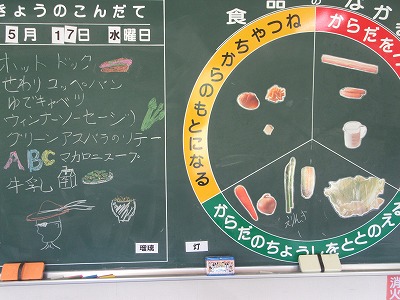 きょうのこんだて
5月 17日 水曜日
ホット ドック
せわり コッペパン
ゆでキャベツ
ウィンナーソーセージ
グリーンアスパラのソテー
ABCマカロニスープ
牛乳
瑠璃
灯
食品のなかま
からだをつ
ちからやねつ
のもとになる
からだのちょうしをととのえる
えんぎ
消火